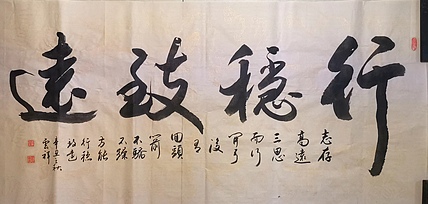 行穩致遠
志存
高遠
三思
而行
開弓
沒
有
回頭
箭
不驕
不躁
方能
行穩
致遠
辛丑之秋
雲祥